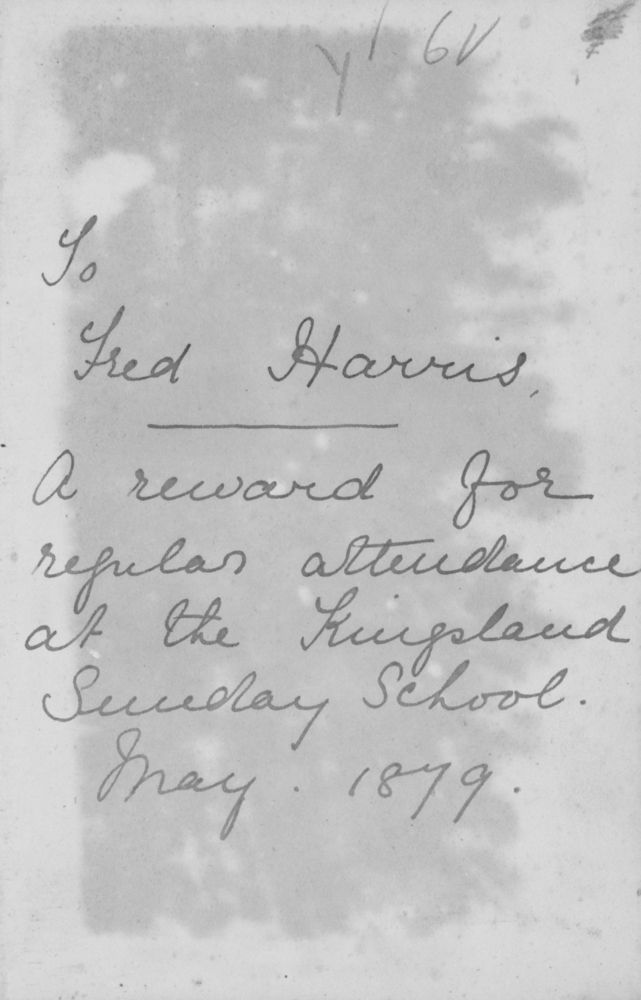 To
Fred Harris,
A reward for
regular attendance
at the Kingsland
Sunday School.
May. 1879.